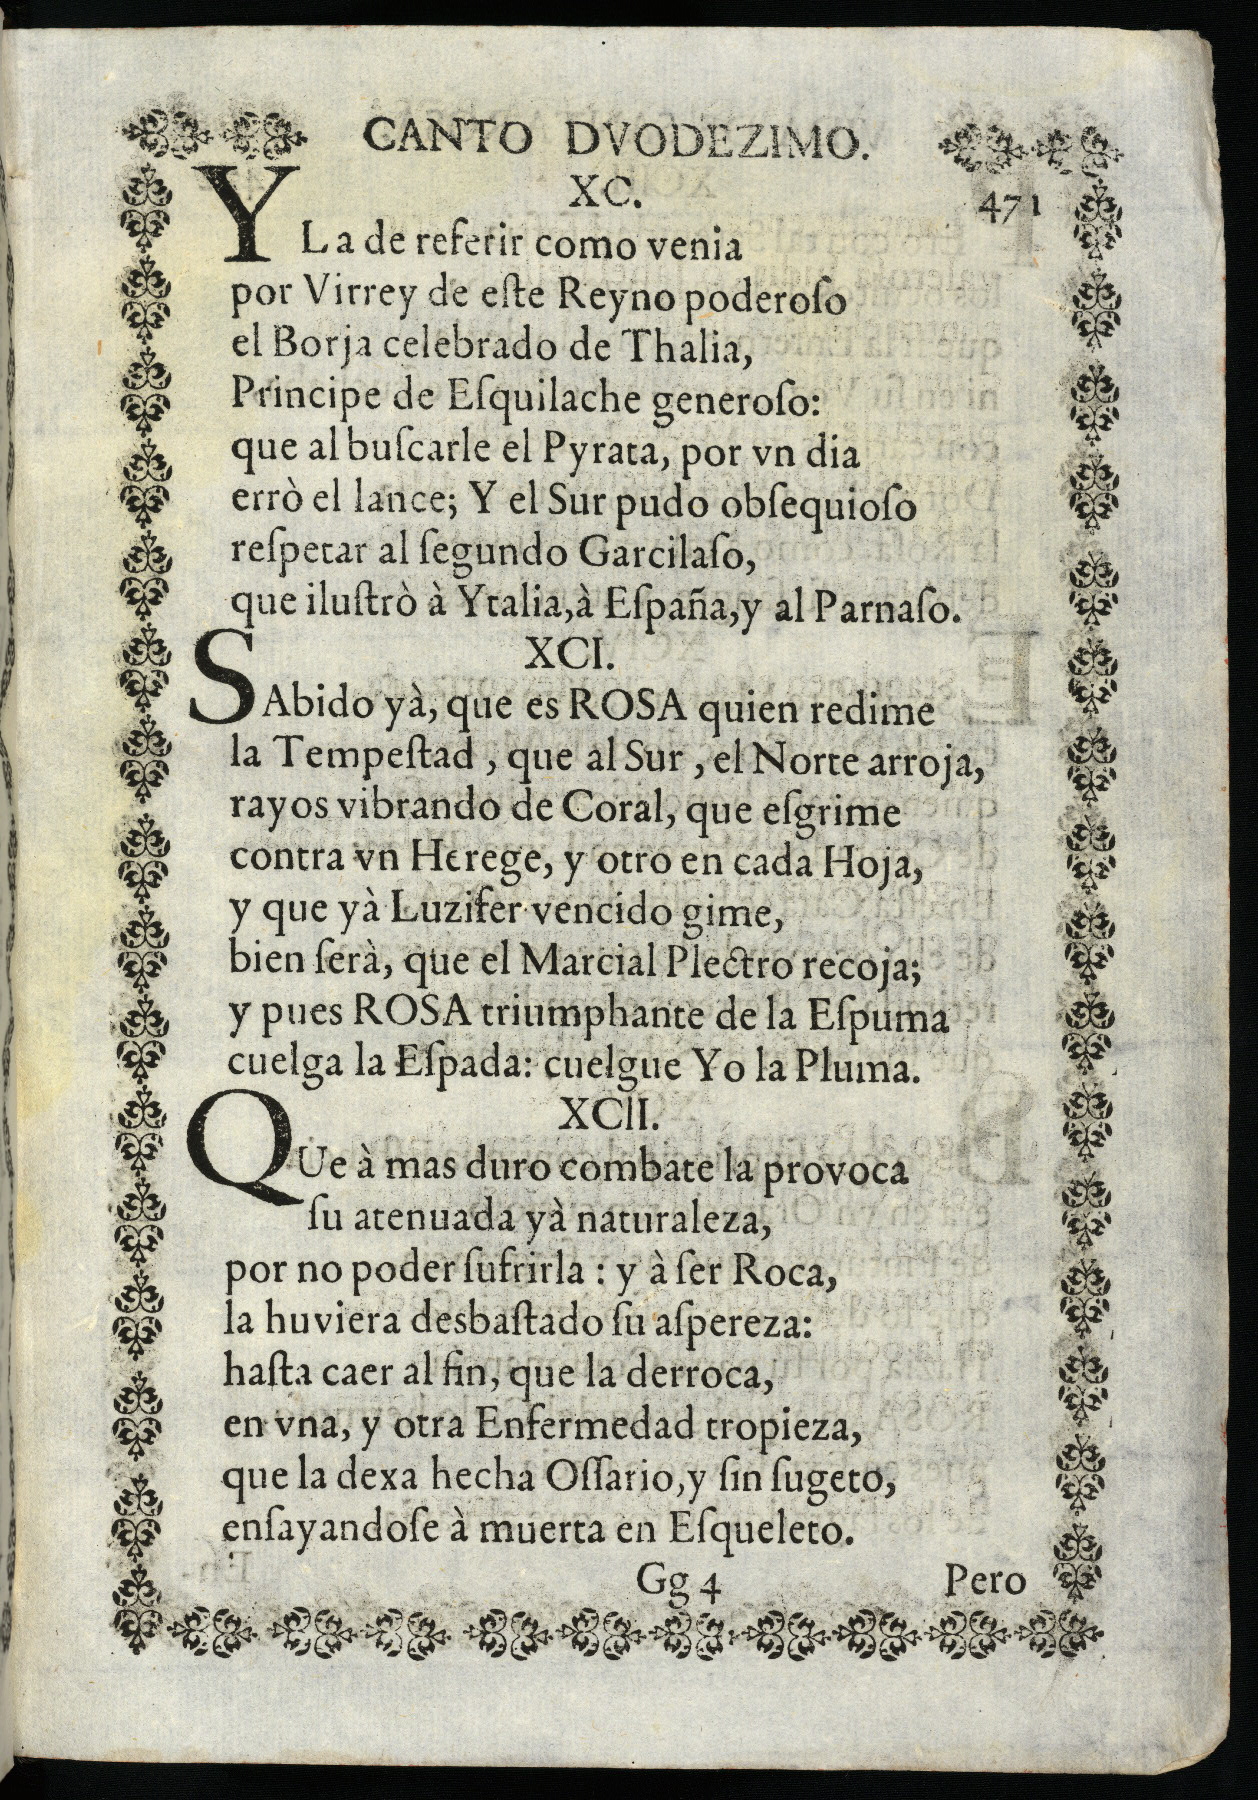 CANTO DVODEZIMO.
471
XC.
Y La de referir como venia
por Virrey de eſte Reyno poderoſo
el Borja celebrado de Thalia,
Principe de Eſquilache generoſo:
que al buſcarle el Pyrata, por vn dia
errò el lance; Y el Sur pudo obſequioſo
reſpetar al ſegundo Garcilaſo,
que iluſtrò à Ytalia, à Eſpaña, y al Parnaſo.
XCI.
SAbido yà, que es ROSA quien redime
la Tempeſtad, que al Sur, el Norte arroja,
rayos vibrando de Coral, que eſgrime
contra vn Herege, y otro en cada Hoja,
y que yà Luzifer vencido gime,
bien ſerà, que el Marcial Plectro recoja;
y pues ROSA triumphante de la Eſpuma
cuelga la Eſpada: cuelgue Yo la Pluma.
XCII.
QUe à mas duro combate la provoca
ſu atenuada yà naturaleza,
por no poder ſufrirla: y à ſer Roca,
la huviera desbaſtado ſu aſpereza:
haſta caer al fin, que la derroca,
en vna, y otra Enfermedad tropieza,
que la dexa hecha Oſſario, y ſin ſugeto,
enſayandoſe à muerta en Eſqueleto.
Gg 4 Pero